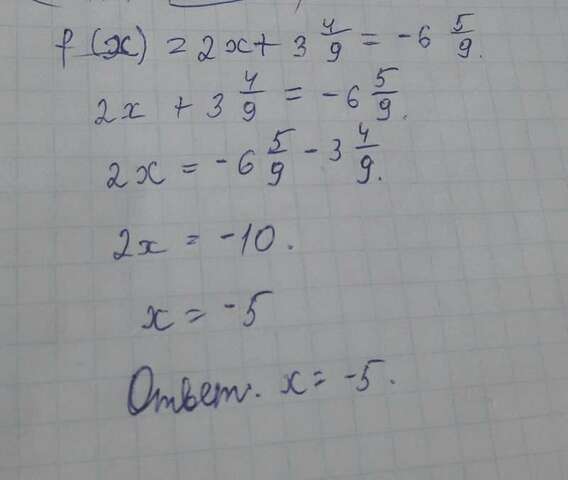 f (x) = 2x + 3 4/9 = -6 5/9.
2x + 3 4/9 = -6 5/9.
2x = -6 5/9 - 3 4/9.
2x = -10.
x = -5
Ответ. x = -5.